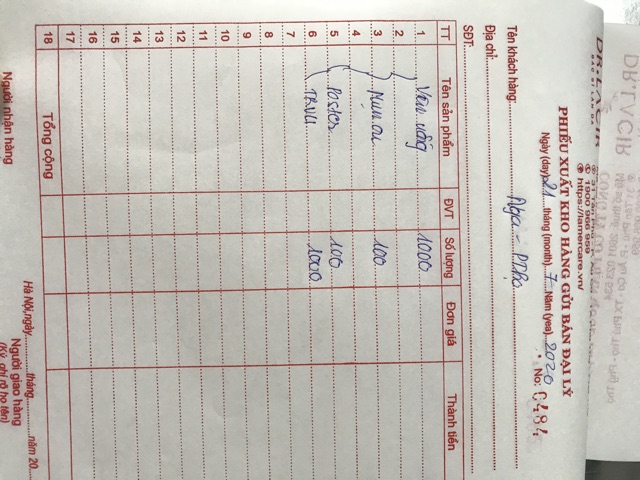 DR.LACIR
☎ 1900 966 959
⊕ https://lamercare.vn/
PHIẾU XUẤT KHO HÀNG GỬI BÁN ĐẠI LÝ
Ngày (day) 21 tháng (month) 7 Năm (yea) 2020 No: 0484
Tên khách hàng: Nga -
Địa chỉ:
SĐT:
TT Tên sản phẩm ĐVT Số lượng Đơn giá Thành tiền
1 Viên uống 1000
2
3 Mụn ou 100
4
5 Poster 100
6 TRVU 1000
7
8
9
10
11
12
13
14
15
16
17
18 Tổng cộng
Hà Nội, ngày tháng năm 20
Người nhận hàng Người giao hàng
(Ký, ghi rõ họ tên)